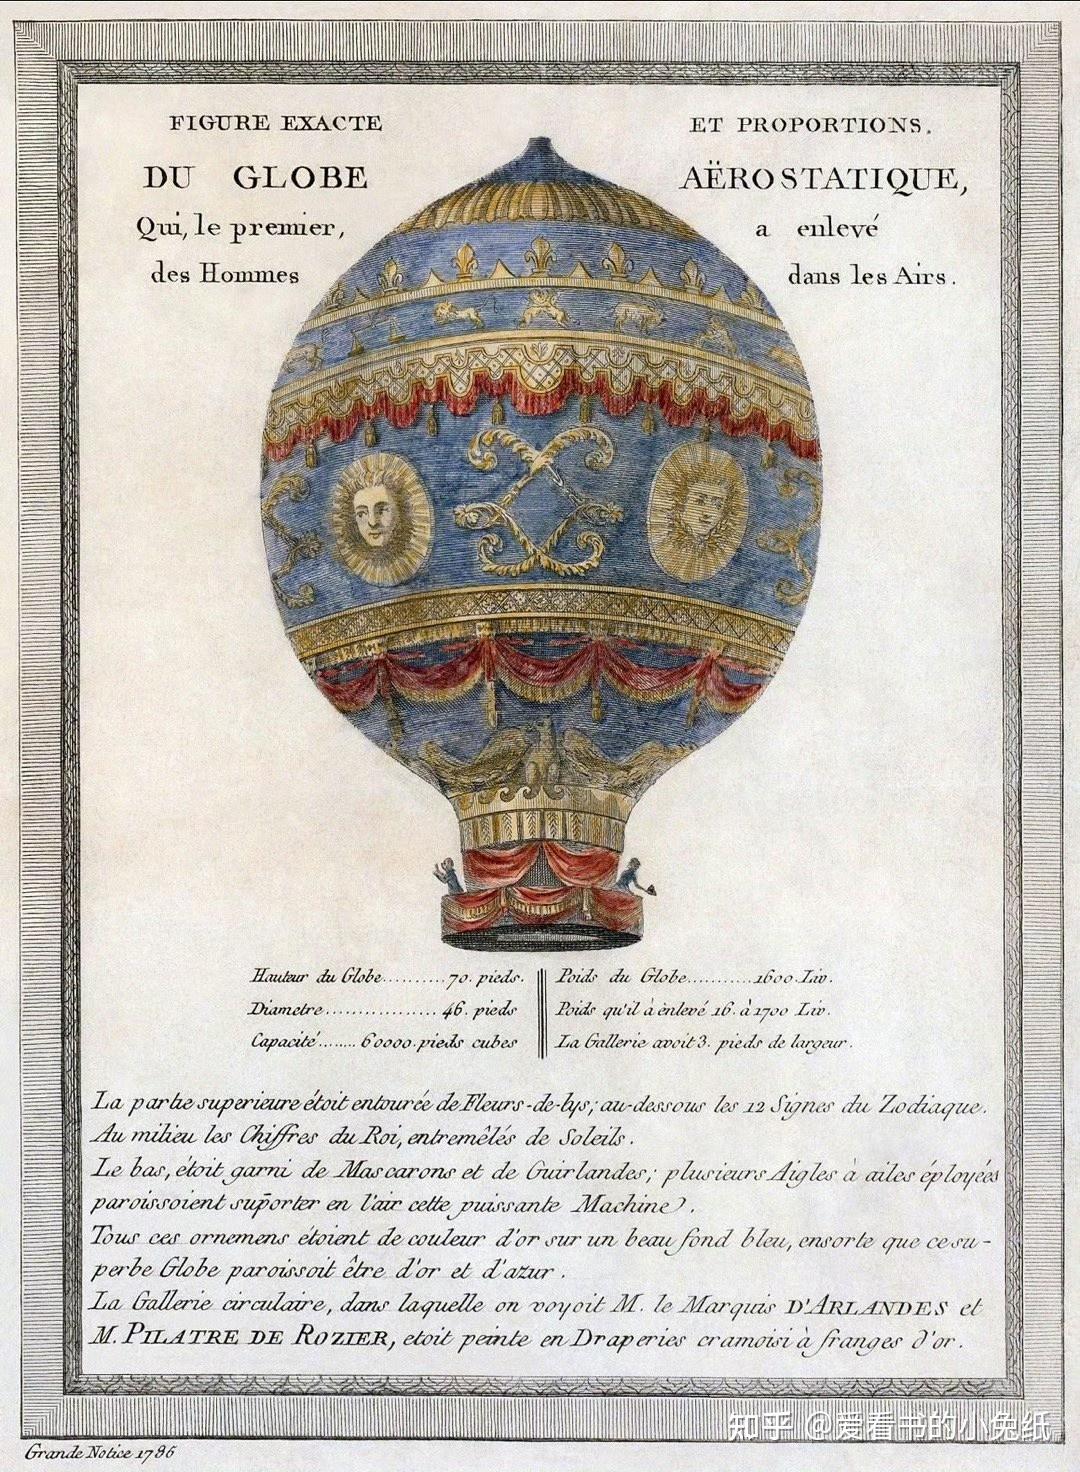 FIGURE EXACTE ET PROPORTIONS.
DU GLOBE AËROSTATIQUE,
Qui, le premier, a enlevé
des Hommes dans les Airs.
Hauteur du Globe..........70. pieds.
Diametre................. 46. pieds
Capacité........ 60000. pieds cubes
Poids du Globe...........1600. Liv.
Poids qu'il à ènlevé 16. à 1700 Liv.
La Gallerie avoit 3. pieds de largeur.
La partie superieure étoit entourée de Fleurs-de-lys; au-dessous les 12 Signes du Zodiaque.
Au milieu les Chiffres du Roi, entremêlés de Soleils.
Le bas, étoit garni de Mascarons et de Guirlandes; plusieurs Aigles à ailes éployées
paroissoient suporter en l'air cette puissante Machine.
Tous ces ornemens étoient de couleur d'or sur un beau fond bleu, ensorte que ce su-
perbe Globe paroissoit être d'or et d'azur.
La Gallerie circulaire, dans laquelle on voyoit M. le Marquis D'ARLANDES et
M. PILATRE DE ROZIER, etoit peinte en Draperies cramoisi à franges d'or.
知乎 @爱看书的小兔纸
Grande Notice 1786